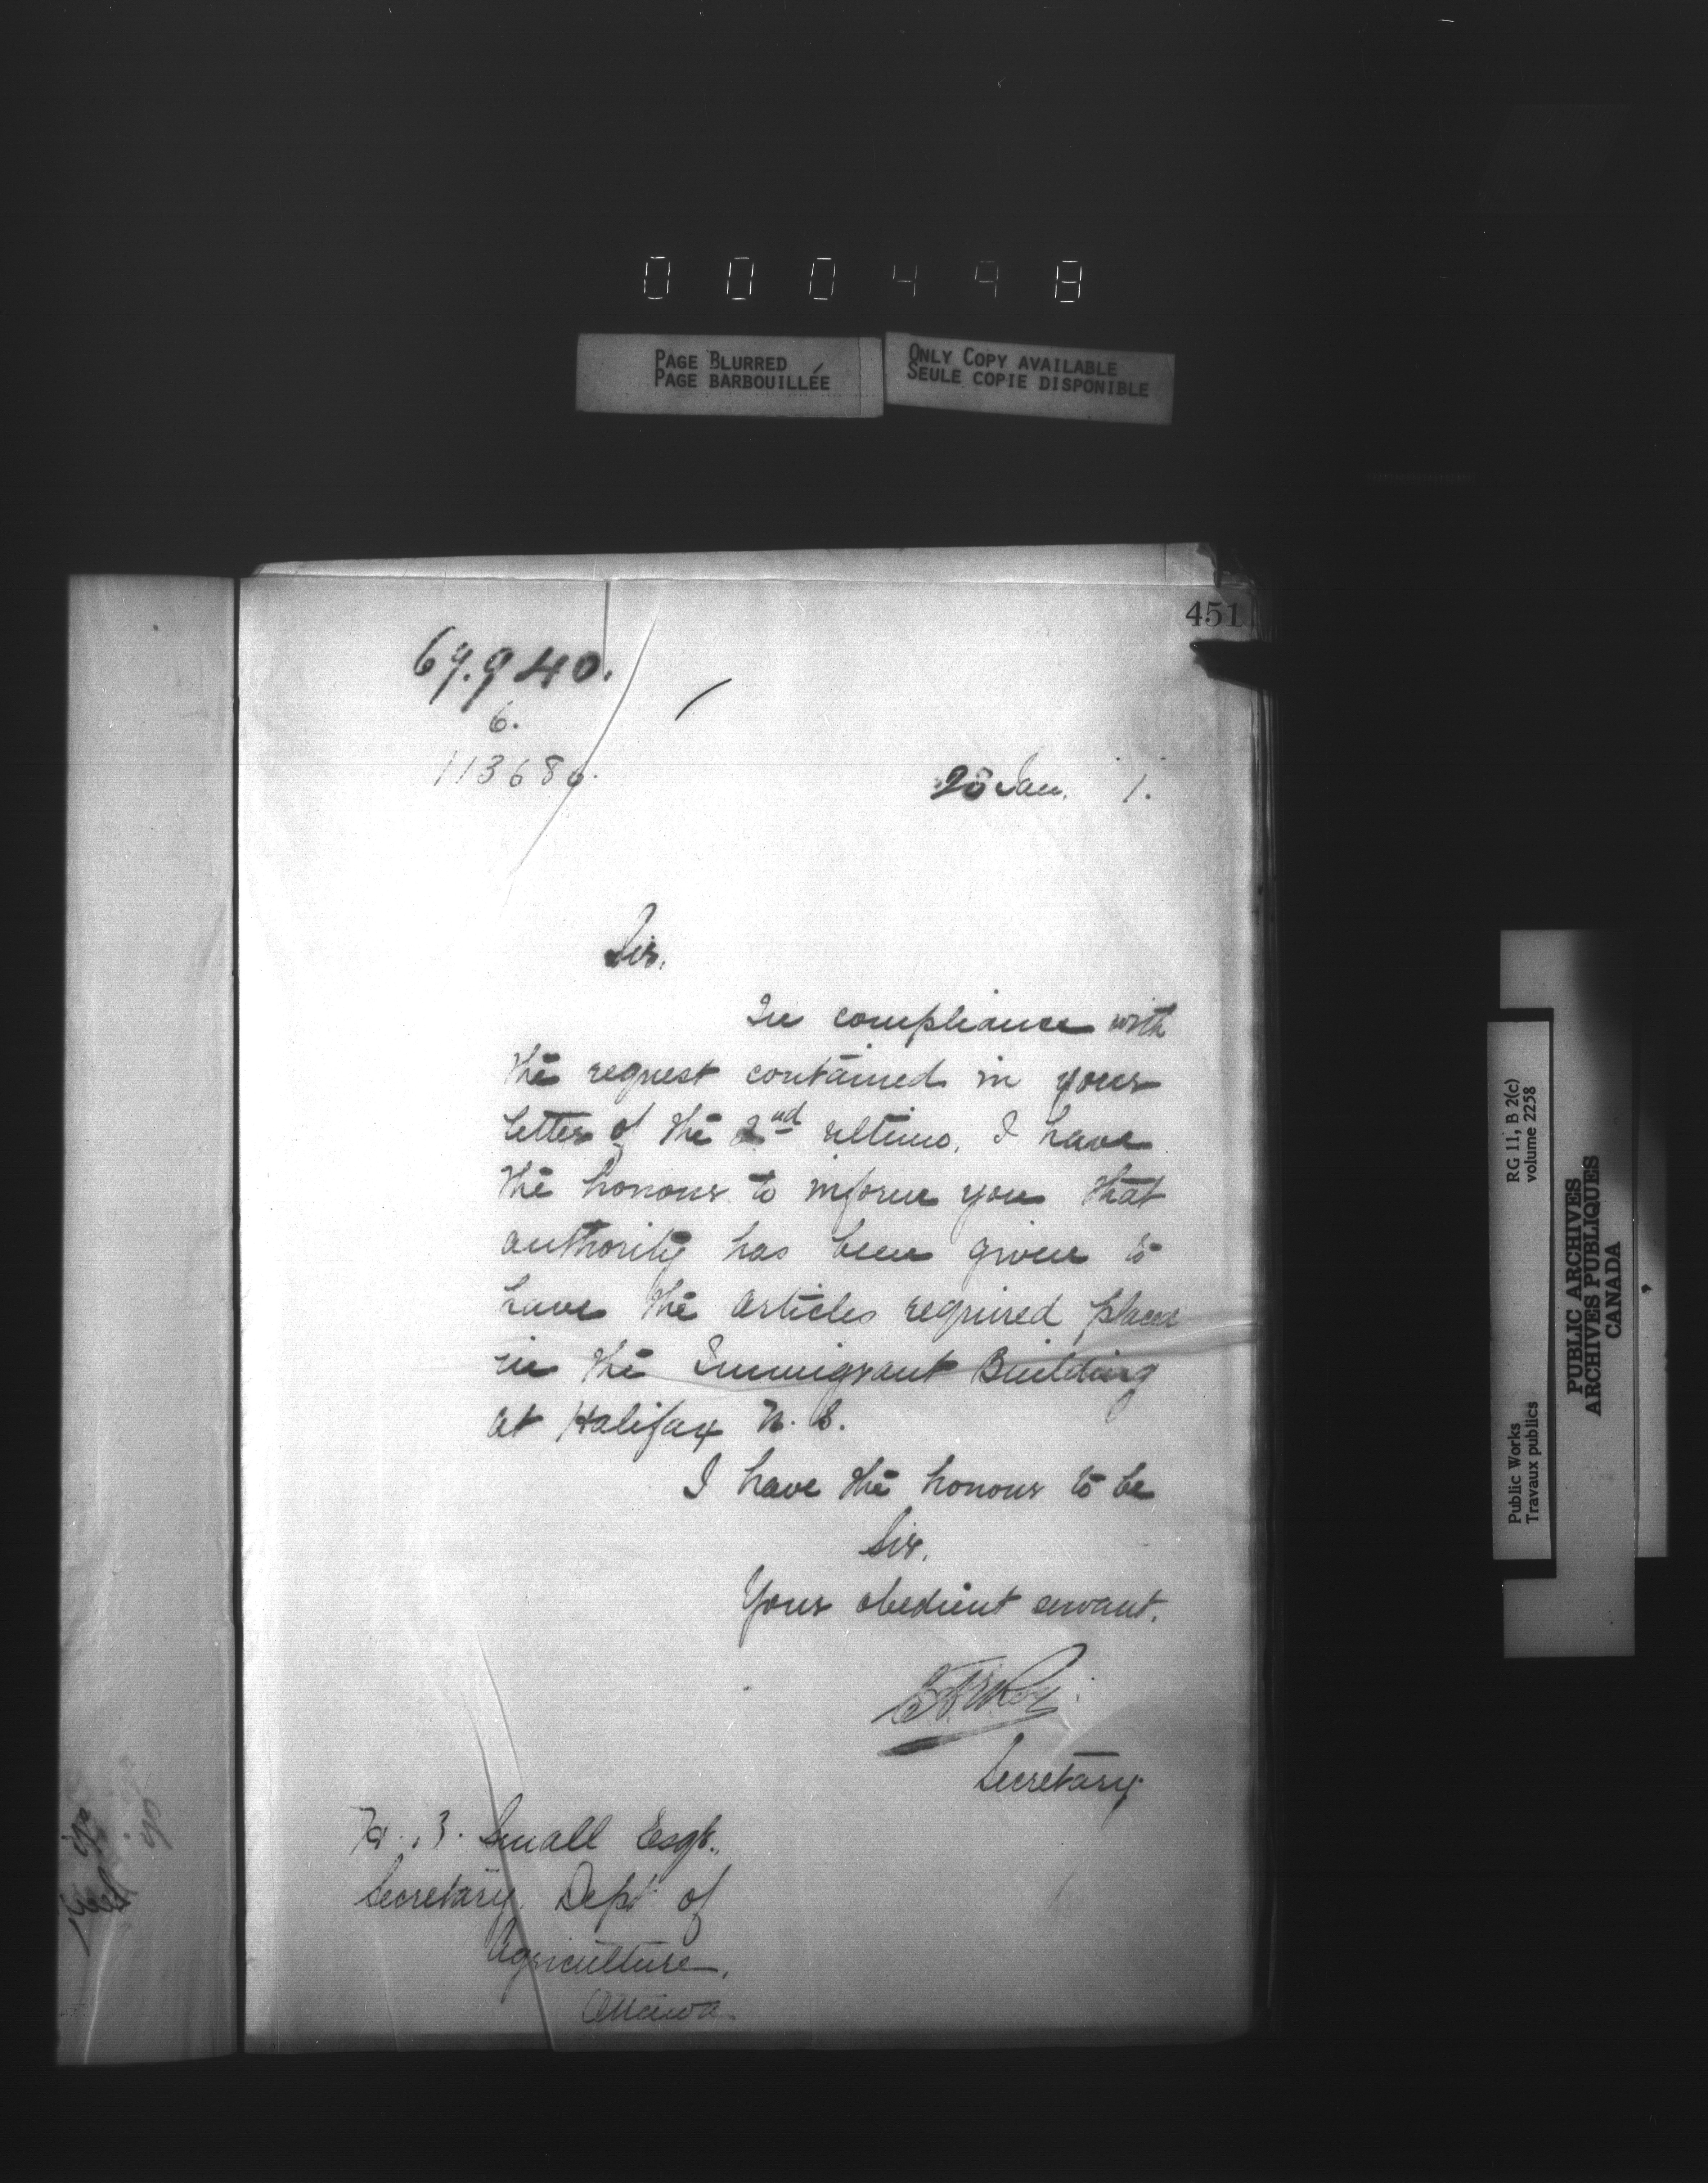 000448
PAGE BLURRED
PAGE BARBOUILLÉE
ONLY COPY AVAILABLE
SEULE COPIE DISPONIBLE
451
69.940.
6.
113686.
28 Jan. 1.
Sir,
In compliance with
the request contained in your
letter of the 2nd ultimo, I have
the honour to inform you that
authority has been given to
have the articles required placed
in the Immigrant Building
at Halifax N. S.
I have the honour to be
Sir,
Your obedient servant.
Secretary
Small Esqr.,
Secretary, Dept of
Agriculture,
Ottawa
RG 11, B 2(c)
volume 2258
Public Works
Travaux publics
PUBLIC ARCHIVES
ARCHIVES PUBLIQUES
CANADA